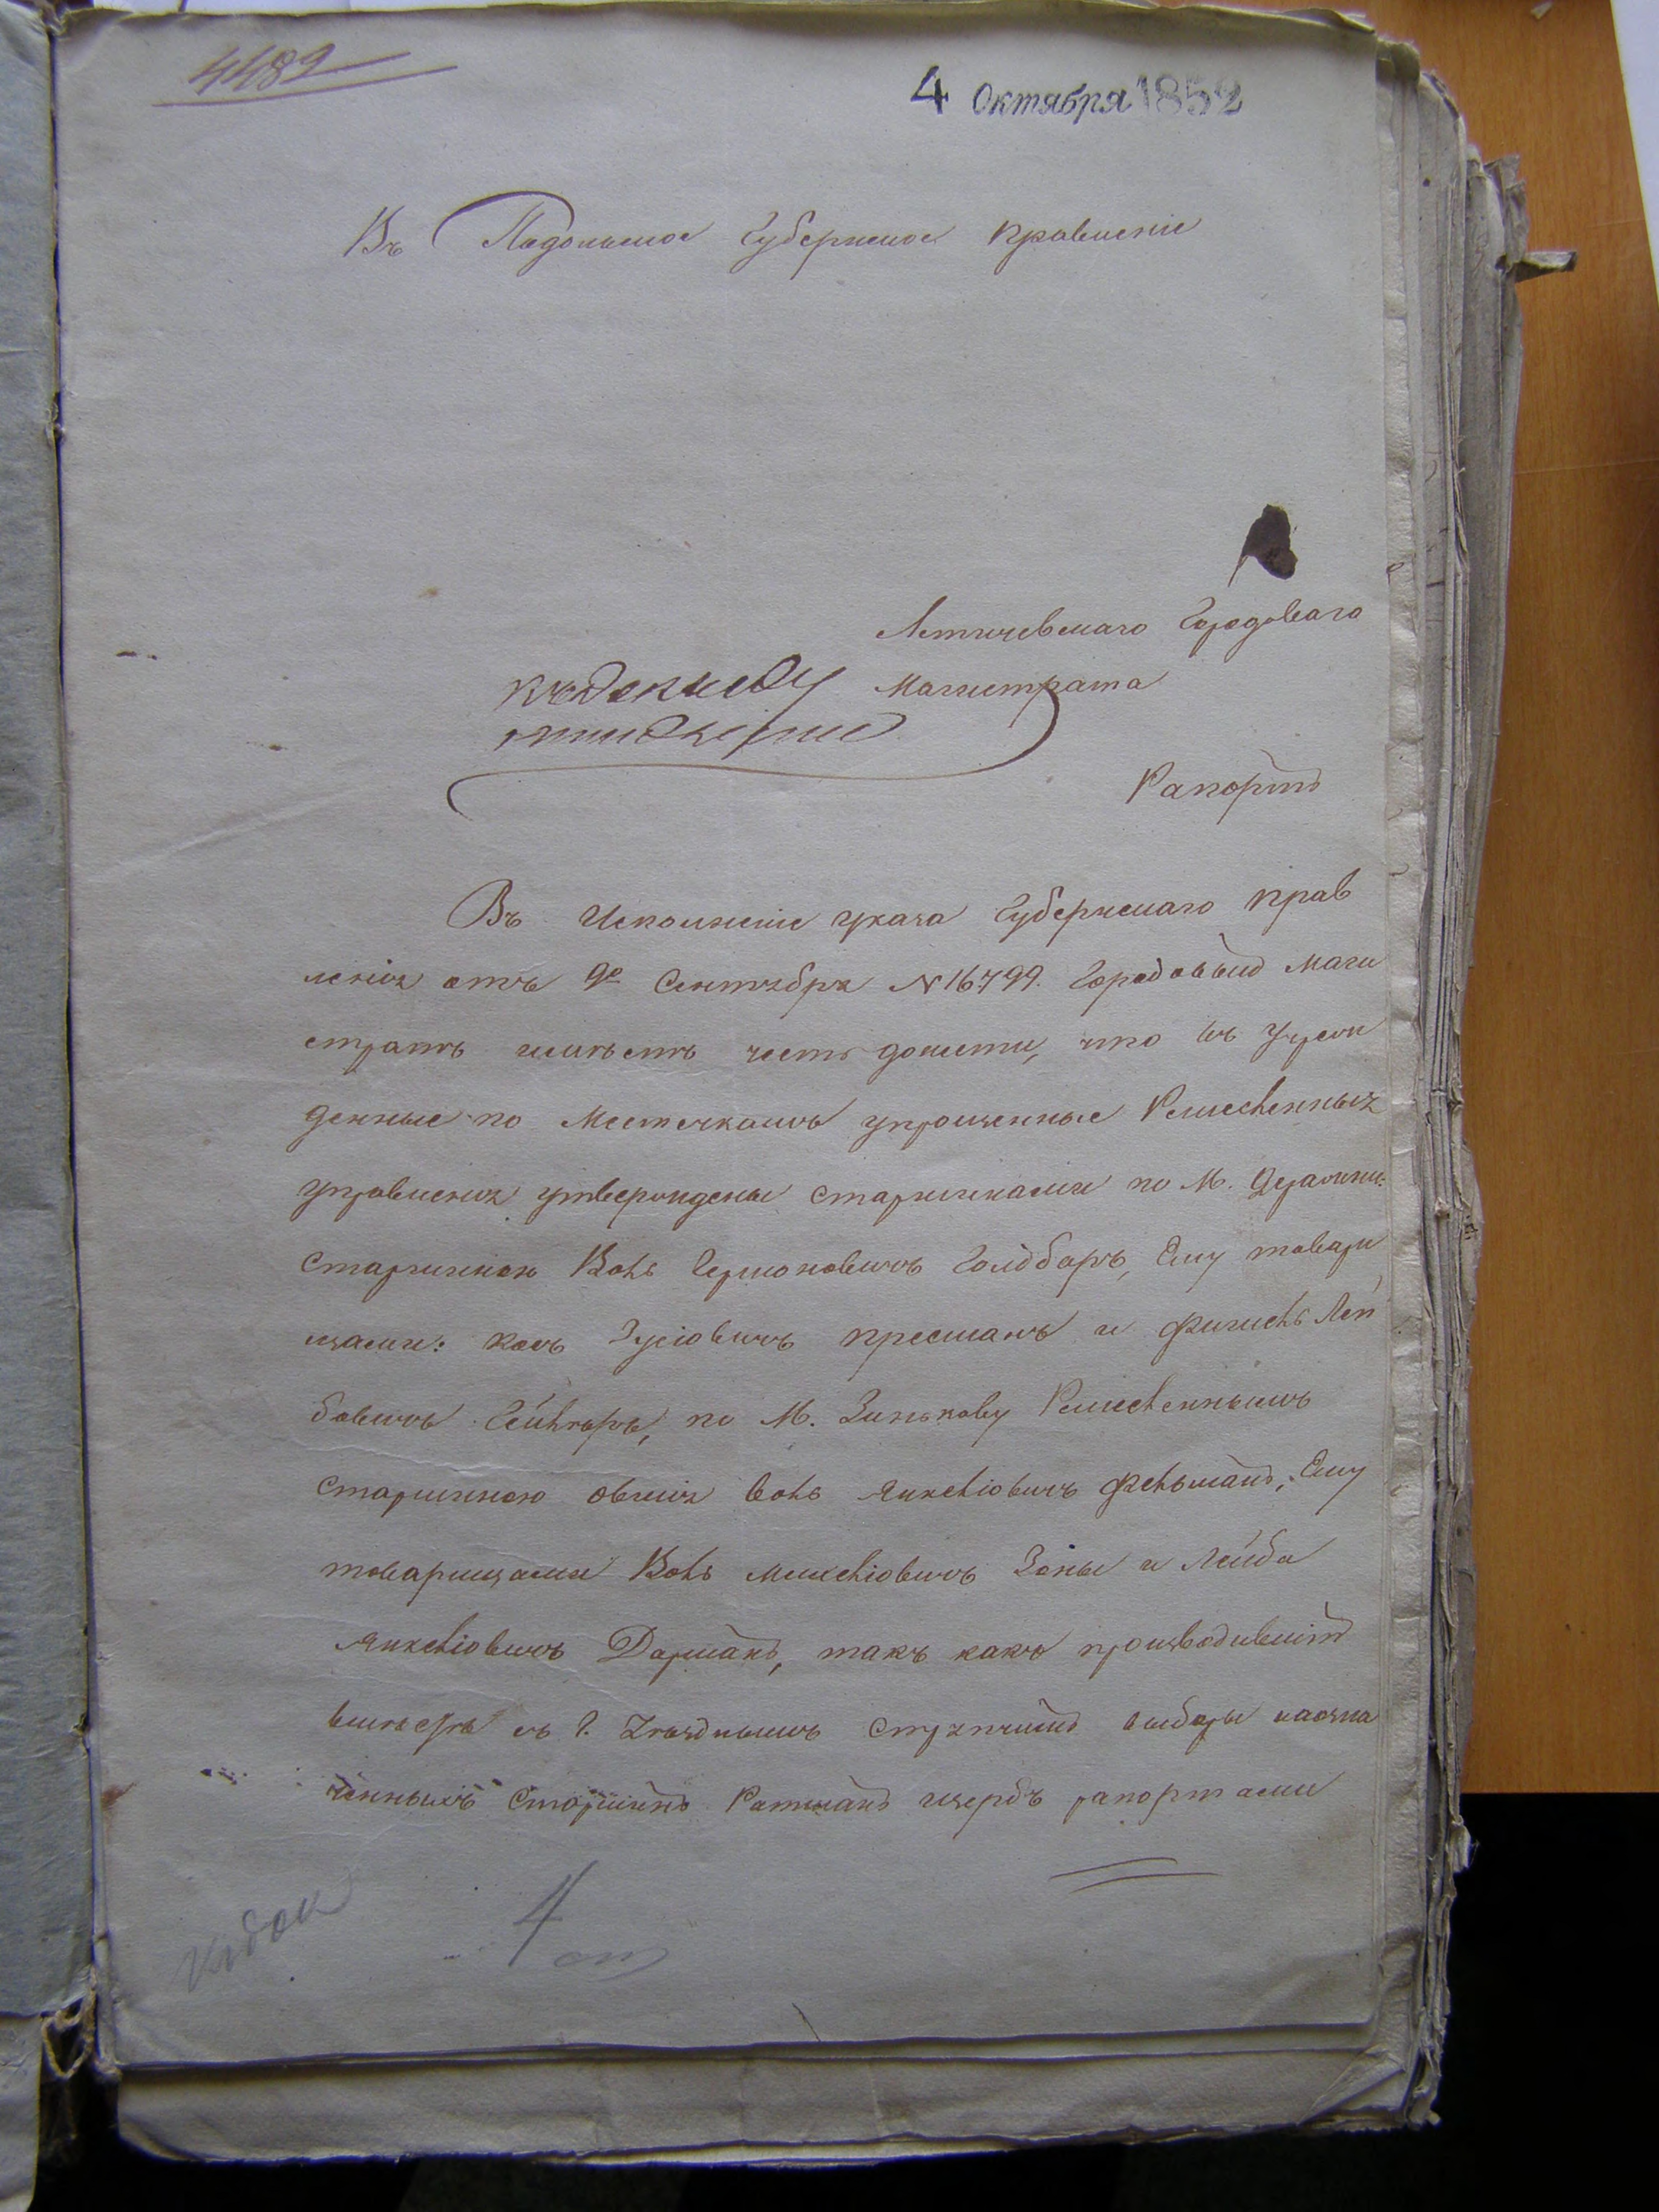 4489
4 Октября 1852
Въ Подольское Губернское Правленіе
Летичевскаго Городоваго
Магистрата
Рапортъ
Въ Исполненіе указа Губернскаго Прав
ленія отъ 9го Сентября N 16799. Городовый Маги
стратъ имѣетъ честь донести, что въ Учреж
денные по Местечкамъ упрощенные Ремесленныя
управленія утверждены старшинами по М. Деражни:
старшиною Волъ Гершоновичъ Голдбаръ, Ему товари
щами: Зусіовичъ и Лей
бовичъ по М. Зинькову Ремесленнымъ
старшиною Янкеліовичъ Фельманъ, Ему
товарищами Волъ Мошеліовичъ и Лейба
Янкеліовичъ Дорманъ, такъ какъ производившій
вмѣстѣ съ Г. Уѣзднымъ Стряпчимъ выборы назна
ченныхъ Старшинъ Ратманъ рапортами
4